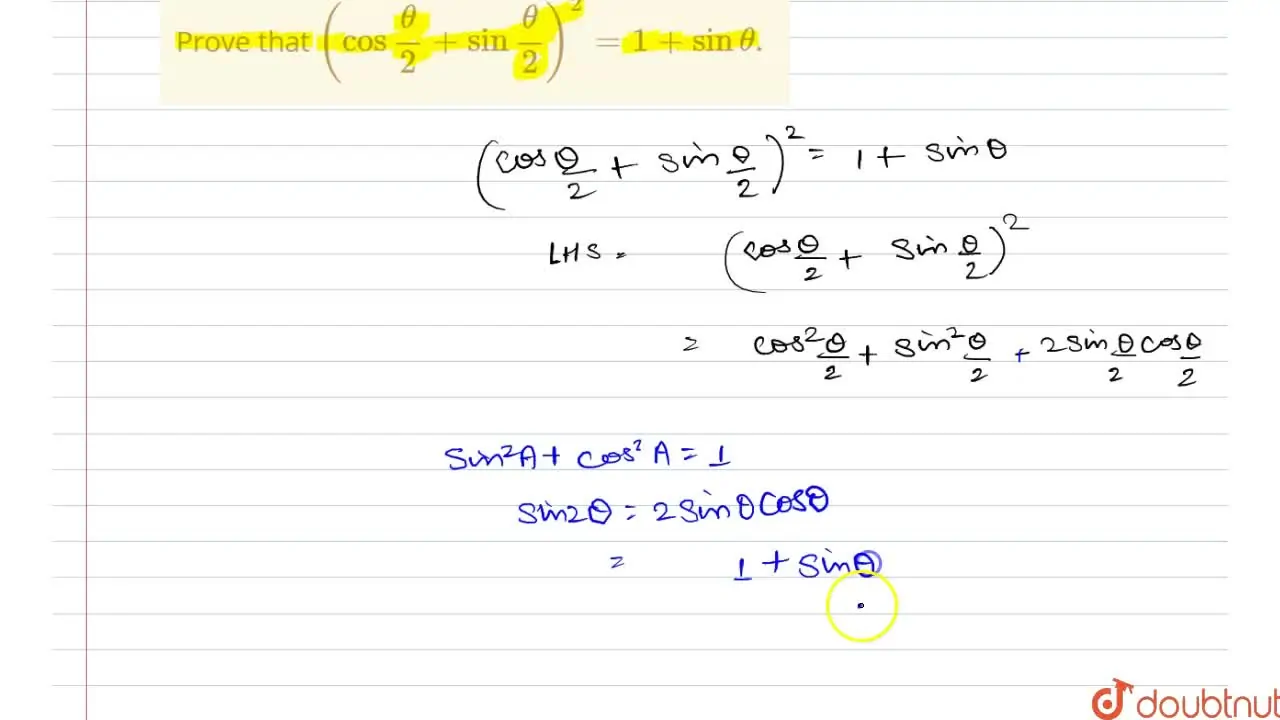 Prove that (cos θ/2 + sin θ/2)² = 1 + sin θ.
(cos θ/2 + sin θ/2)² = 1 + sin θ
LHS = (cos θ/2 + sin θ/2)²
= cos² θ/2 + sin² θ/2 + 2 sin θ/2 cos θ/2
sin²A + cos²A = 1
sin2θ = 2 sin θ cos θ
= 1 + sin θ
doubtnut